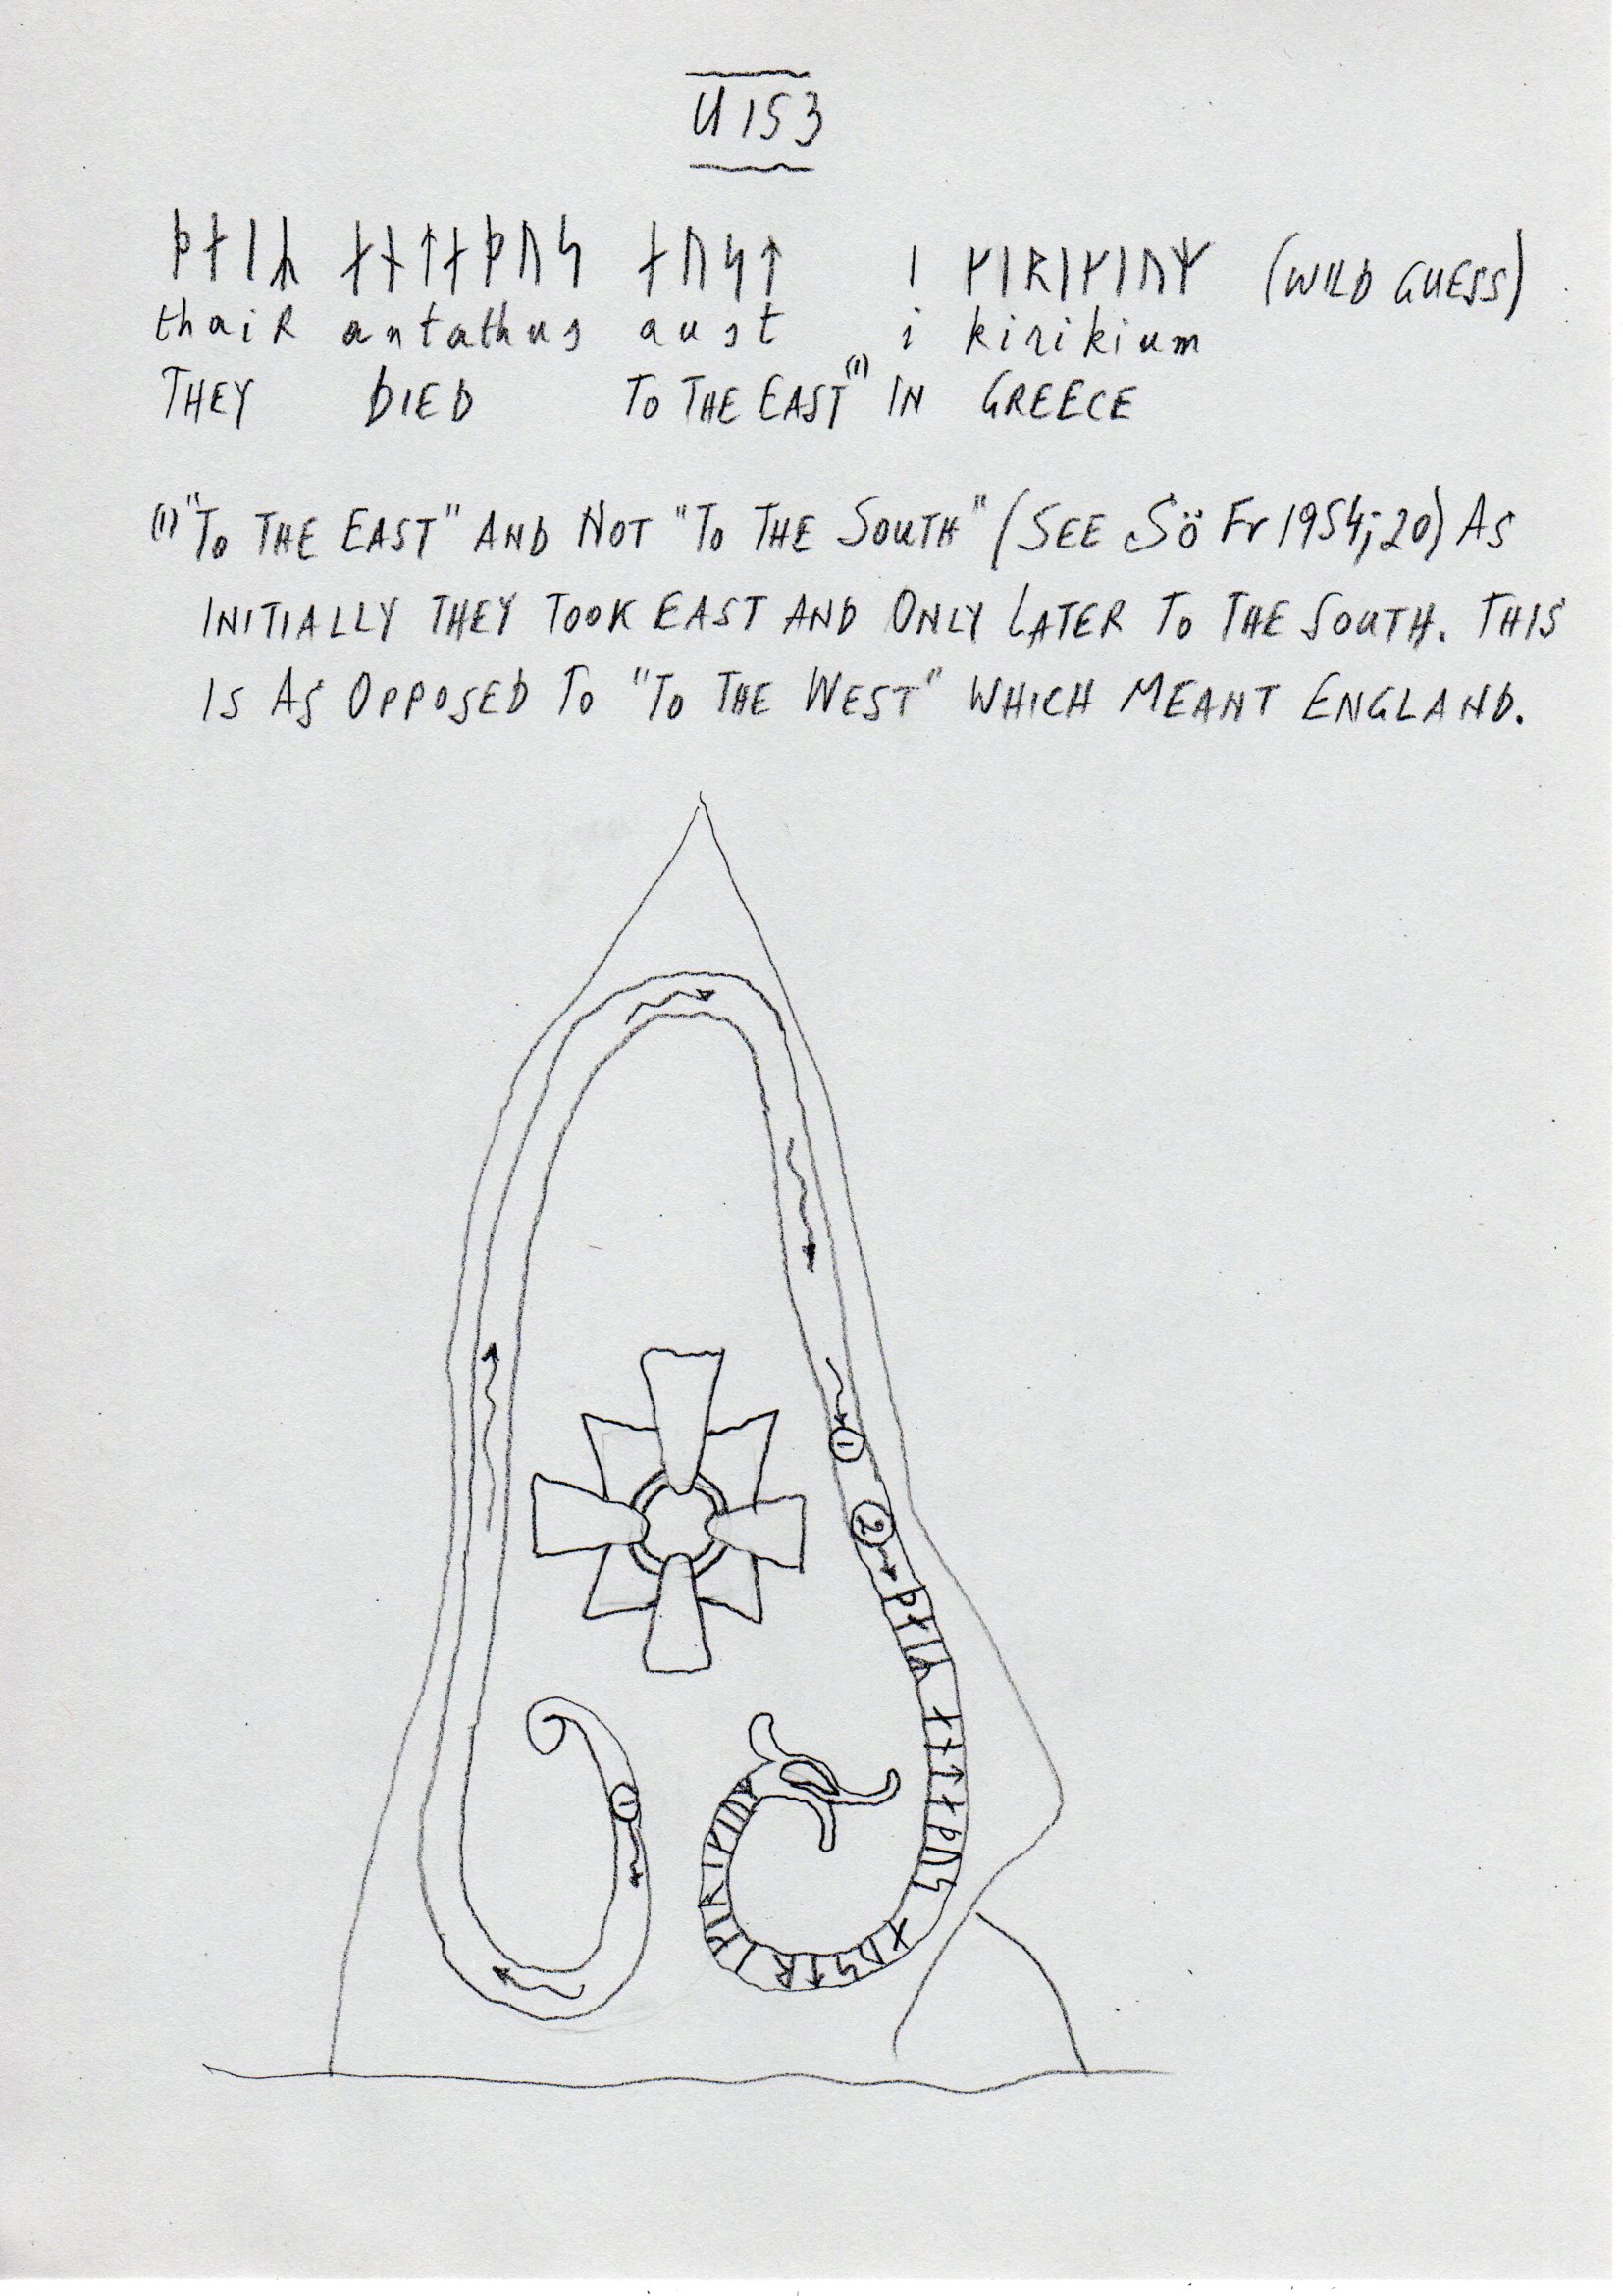 U 153
ᚦᛅᛁᛦ ᛅᚾᛏᛅᚦᚢᛋ ᛅᚢᛋᛏ ᛁ ᚴᛁᚱᛁᚴᛁᚢᛘ (WILD GUESS)
thaiR antathus aust i kirikium
THEY DIED TO THE EAST(1) IN GREECE
(1) "TO THE EAST" AND NOT "TO THE SOUTH" (SEE Sö Fr 1954; 20) AS
INITIALLY THEY TOOK EAST AND ONLY LATER TO THE SOUTH. THIS
IS AS OPPOSED TO "TO THE WEST" WHICH MEANT ENGLAND.
1
2
ᚦᛅᛁᛦ ᛅᚾᛏᛅᚦᚢᛋ ᛅᚢᛋᛏᚱ ᛁ ᚴᛁᚱᛁᚴᛁᚢᛘ
1